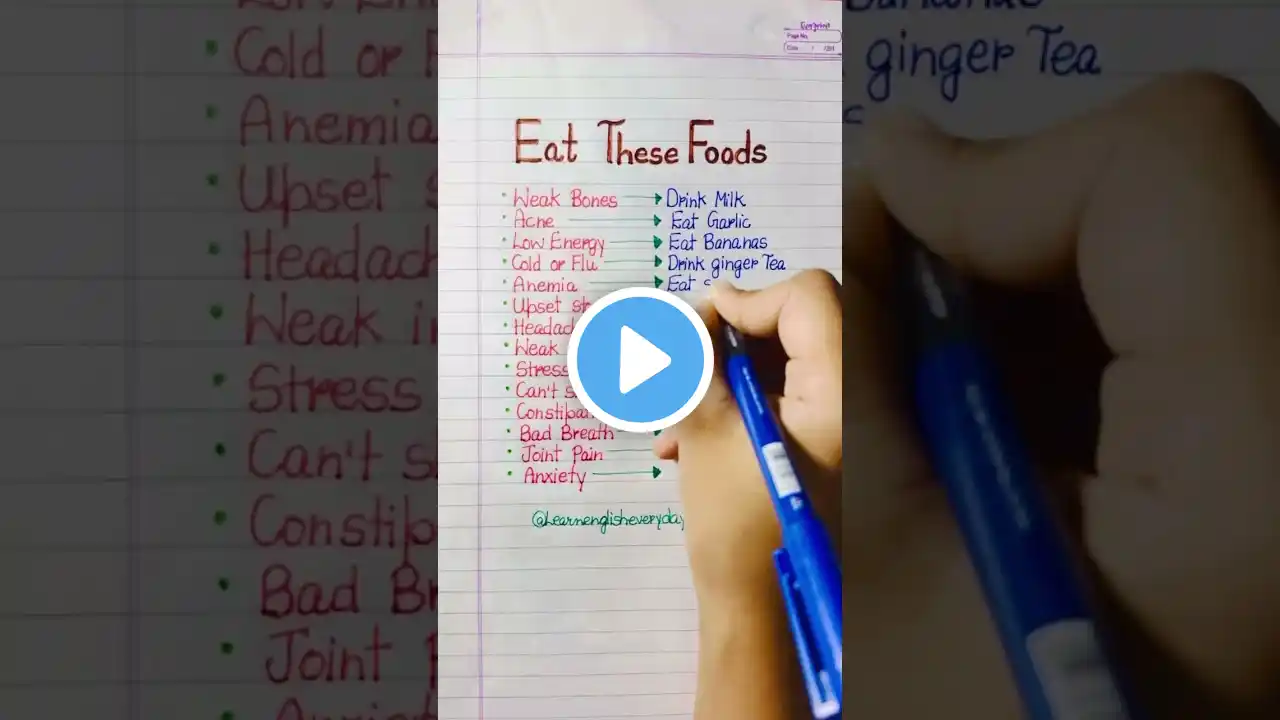 Page No.
Date
Eat These Foods
Weak Bones → Drink Milk
Acne → Eat Garlic
Low Energy → Eat Bananas
Cold or Flu → Drink ginger Tea
Anemia → Eat
Upset
Headac
Weak
Stress
Can't
Constipa
Bad Breath →
Joint Pain
Anxiety →
@Learnenglisheveryday